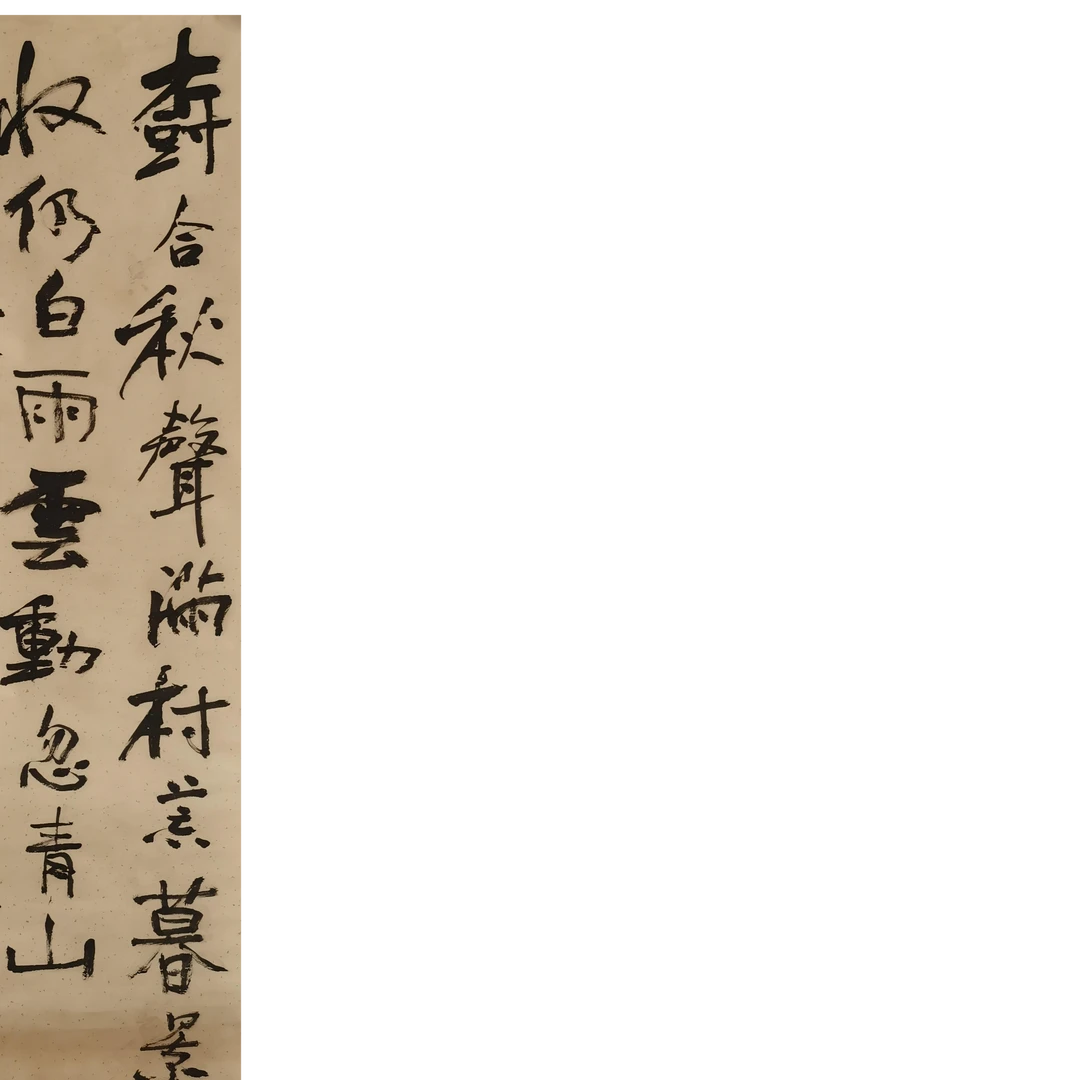 樹合秋聲滿村荒暮景
收仍白雨雲動忽青山